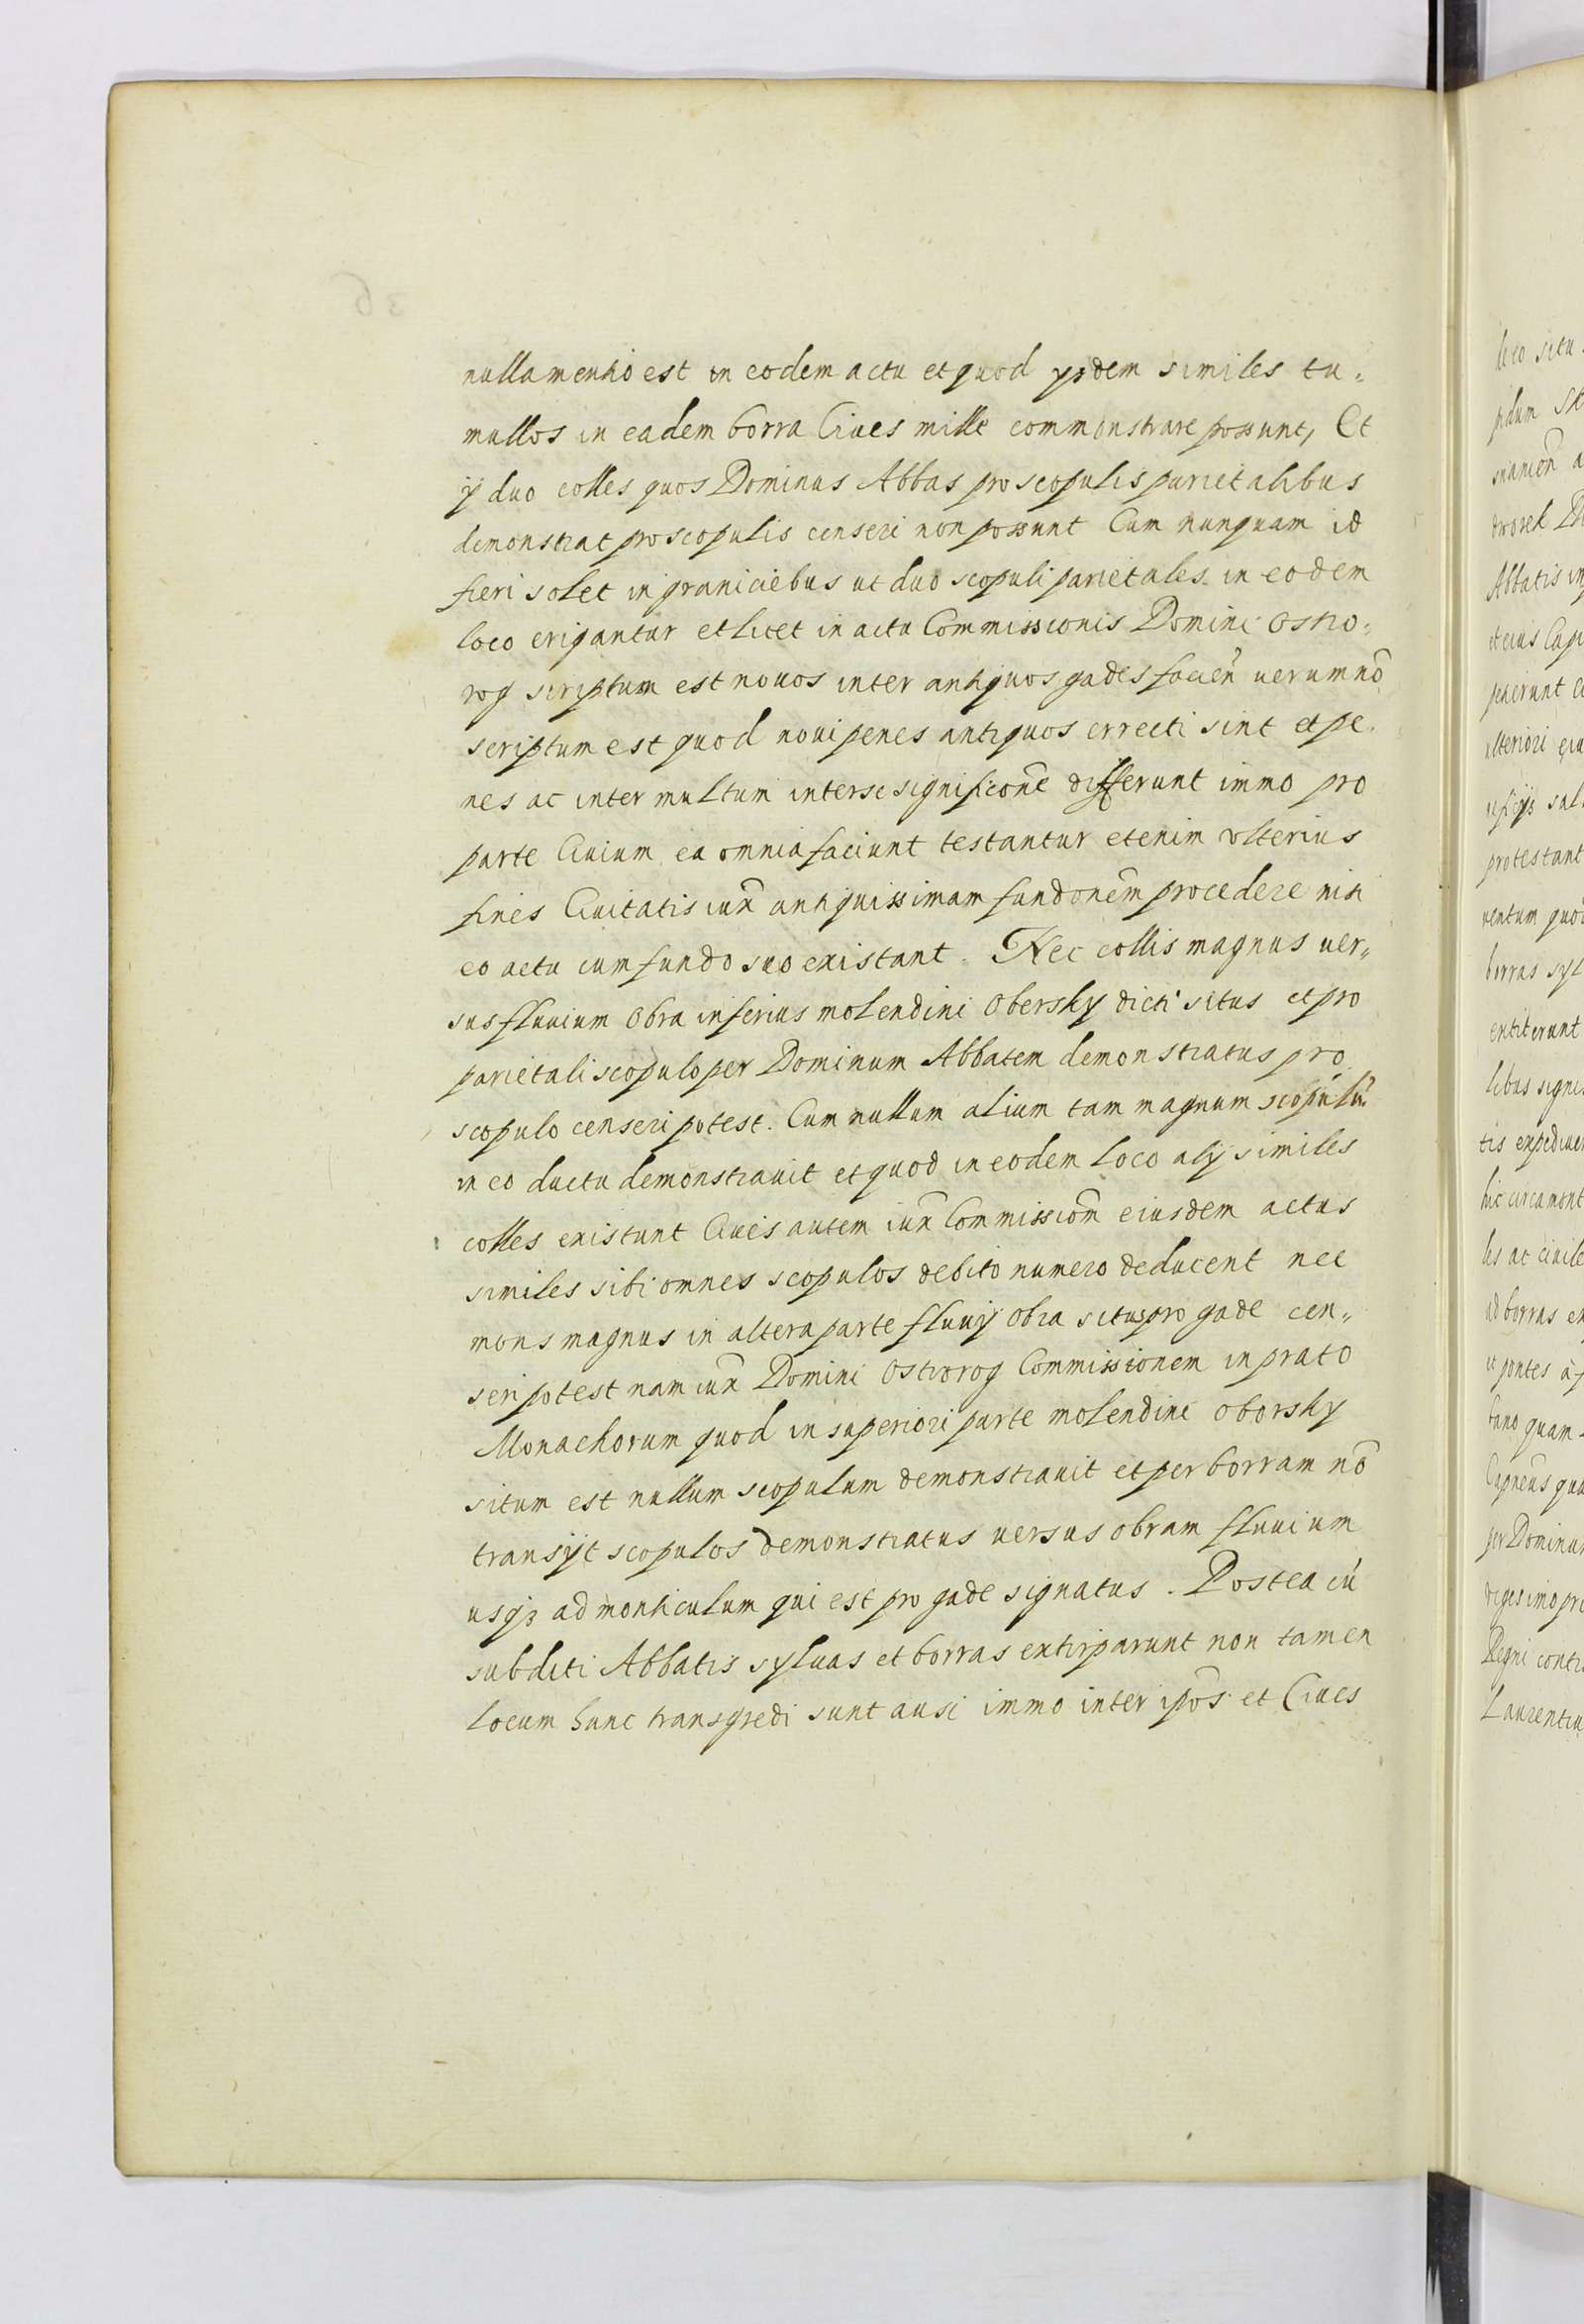 nulla mentio est in eodem actu et quod ibidem similes tu:
mullos in eadem borra Ciues mille commonstrare possunt, Et
ij duo colles quos Dominus Abbas pro scopulis parietalibus
demonstrat pro scopulis censeri non possunt Cum nunquam id
fieri solet in graniciebus ut duo scopuli parietales in eodem
loco erigantur et licet in actu Commissionis Domini Ostro:
rog scriptum est nouos inter antiquos gades facien̄ uerum nō
scriptum est quod noui penes antiquos errecti sint et pe
nes ac inter multum inter se significon̄e differunt immo pro
parte Ciuium ea omnia faciunt testantur etenim vlterius
fines Ciuitatis iux̄ antiquissimam fundonem̄ procedere nisi
eo actu cum fundo suo existant. Nec collis magnus uer„
sus fluuium Obra inferius molendini Obersky dicti situs et pro
parietali scopulo per Dominum Abbatem demonstratus pro
scopulo censeri potest. Cum nullum alium tam magnum scopulū
in eo ductu demonstrauit et quod in eodem loco alij similes
colles existunt Ciues autem iux̄ Commissiom̄ eiusdem actus
similes sibi omnes scopulos debito numero deducent nec
mons magnus in altera parte fluuij Obra situs pro gade cen„
seri potest nam iux̄ Domini Ostrorog Commissionem in prato
Monachorum quod in superiori parte molendini Oborsky
situm est nullum scopulum demonstrauit et per borram nō
transijt scopulos demonstratus uersus obram fluuium
usq₃ ad monticulum qui est pro gade signatus. Postea cū
subditi Abbatis syluas et borras extirparunt non tamen
locum hunc transgredi sunt ausi immo inter ipōs et Ciues